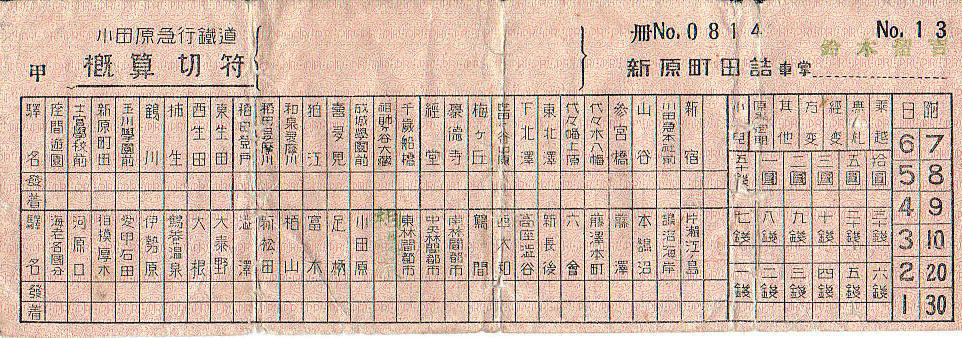 小田原急行鐵道
甲 概算切符
冊No.0814 No.13
鈴木
新原町田詰車掌
驛名 座間遊園 士官學校前 新原町田 玉川學園前 鶴川 柿生 西生田 東生田 稲田登戸 稲田多摩川 和泉多摩川 狛江 喜多見 成城學園前 祖師谷大藏 千歲船橋 經堂 豪徳寺 梅ヶ丘 下北澤 東北澤 代々幡上原 代々木八幡 参宮橋 山谷 新宿
發着
驛名 海老名國分 河原口 相模厚木 愛甲石田 伊勢原 鶴巻温泉 大根 大秦野 澁澤 新松田 栢山 富水 足柄 小田原 東林間都市 中央林間都市 南林間都市 鶴間 西大和 高座澁谷 新長後 六會 藤澤本町 藤澤 本鵠沼 鵠沼海岸 片瀬江ノ島
發着
小兒 其他 方変 經変 乘越
五錢 一圓 二圓 三圓 五圓 拾圓
七錢 八錢 九錢 十錢 二十錢 三十錢
一錢 二錢 三錢 四錢 五錢 六錢
日附
6 7
5 8
4 9
3 10
2 20
1 30